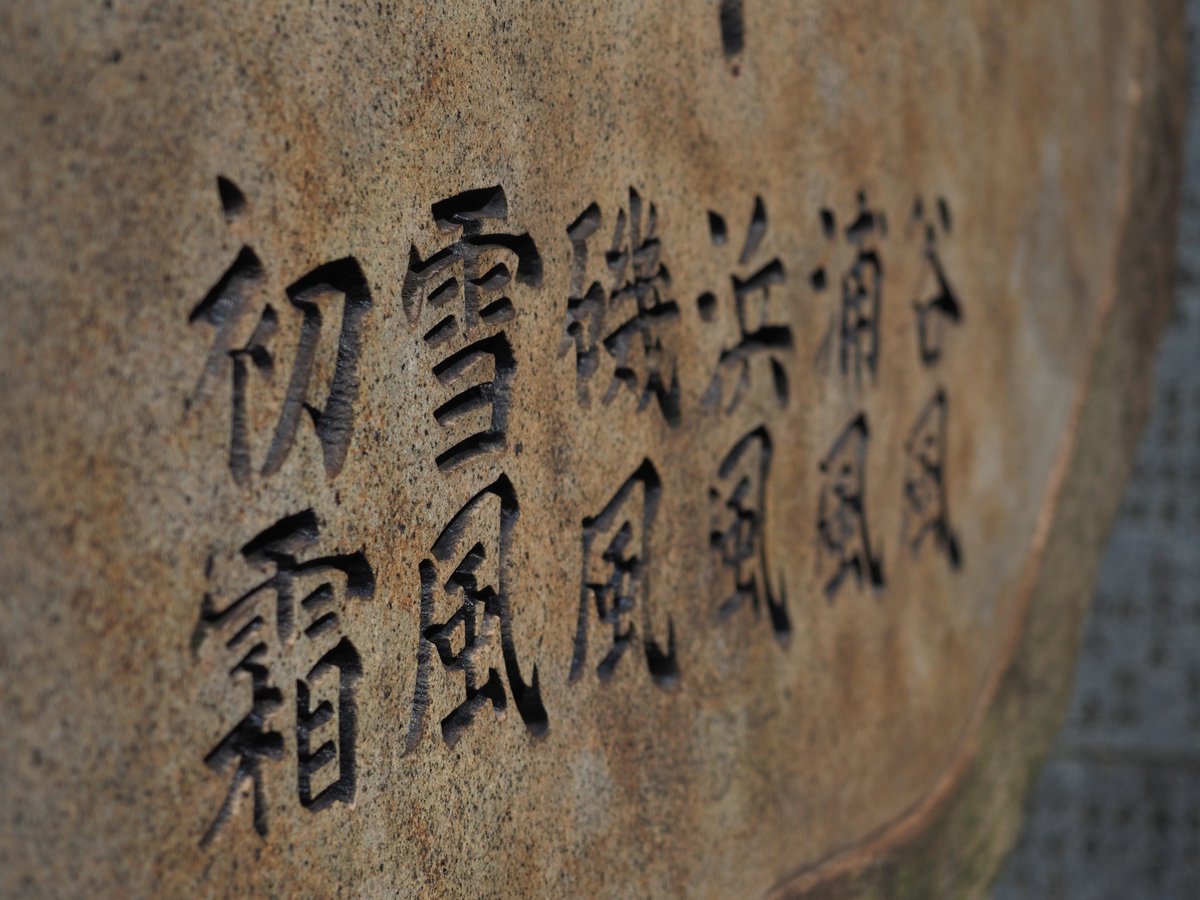 谷風
浦風
浜風
磯風
雪風
初霜